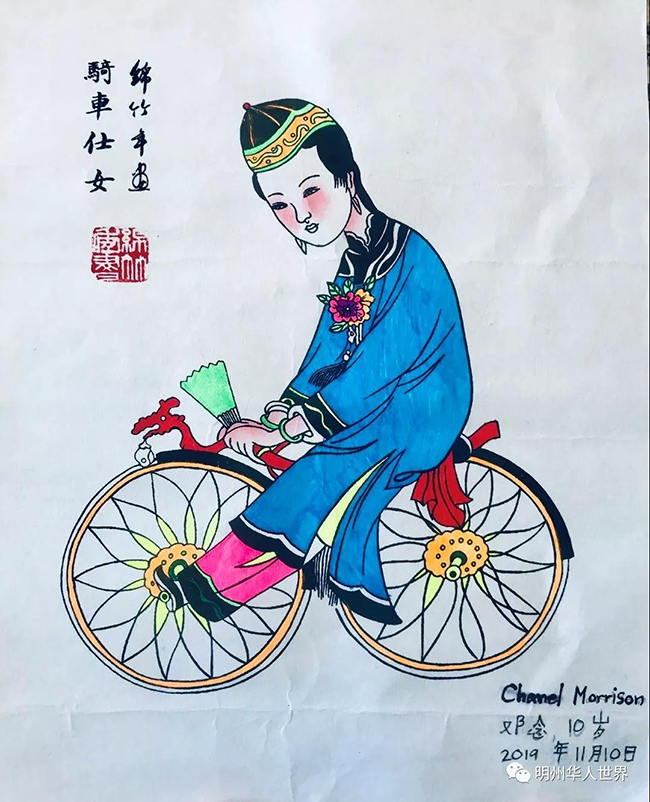 綿竹年畫
騎車仕女
Chanel Morrison
邓念, 10岁
2019 年11月10日
明州华人世界